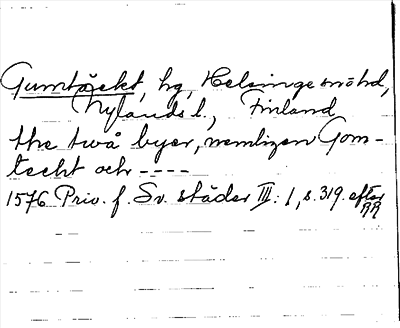 Gumtäckt, hg, Helsinge sn o hd,
Nylands l., Finland
the twå byer, nemligen Gom-
techt och ----
1576 Priv. f. Sv. städer III: 1, s. 319. efter
RR